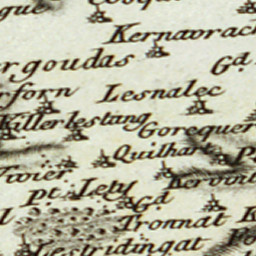 Kernavrach
rgoudas
Gd
rforn Lesnalec
Killerlestang
Gorequer
Quilhart
Pt Lety
Gd
Tronnat K
Lestridingat